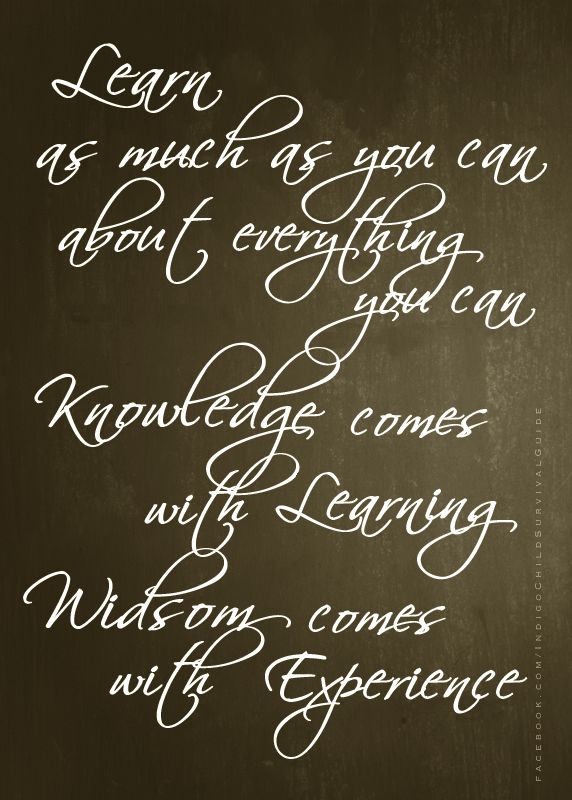 Learn
as much as you can
about everything
you can
Knowledge comes
with Learning
Widsom comes
with Experience
Facebook.com/IndigoChildSurvivalGuide